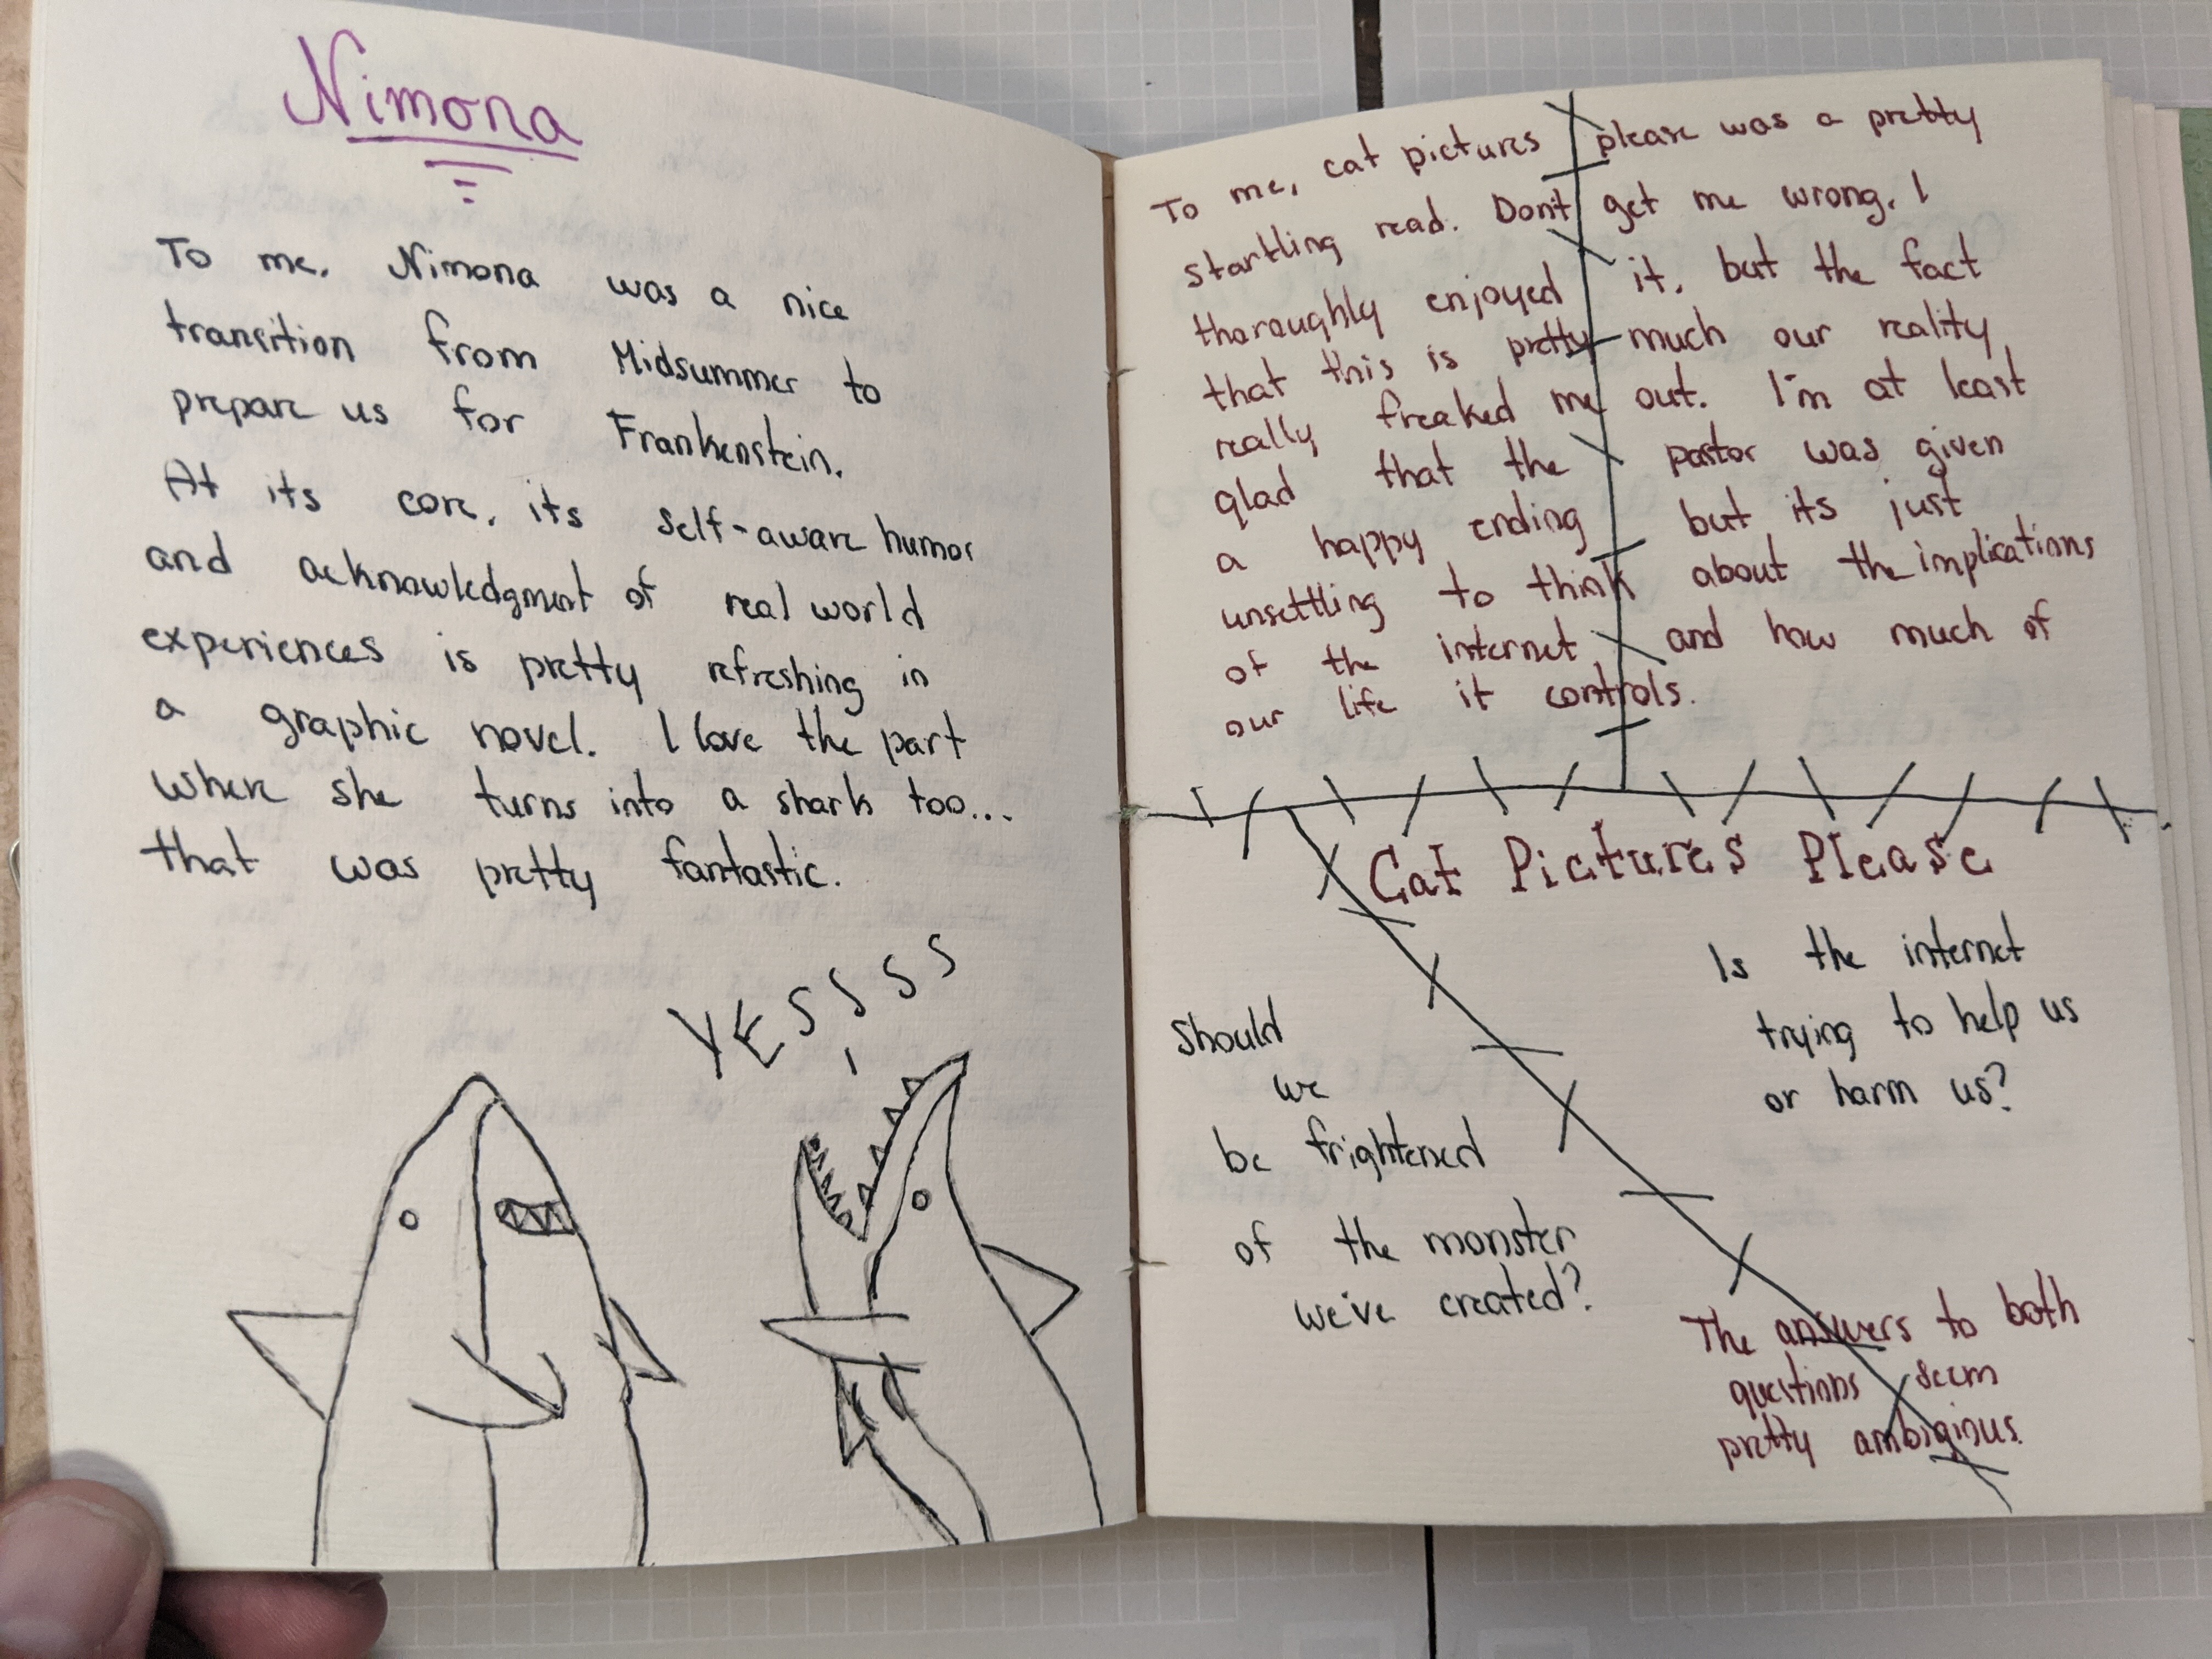 Nimona
To me, Nimona was a nice
transition from Midsummer to
prepare us for Frankenstein.
At its core, its self-aware humor
and acknowledgment of real world
experiences is pretty refreshing in
a graphic novel. I love the part
where she turns into a shark too...
that was pretty fantastic.
YESSSS
To me, cat pictures please was a pretty
startling read. Don't get me wrong, I
thoroughly enjoyed it, but the fact
that this is pretty much our reality
really freaked me out. I'm at least
glad that the pastor was given
a happy ending but its just
unsettling to think about the implications
of the internet and how much of
our life it controls.
Cat Pictures Please
Is the internet
trying to help us
or harm us?
Should
we
be frightened
of the monster
we've created?
The answers to both
questions seem
pretty ambiginus.